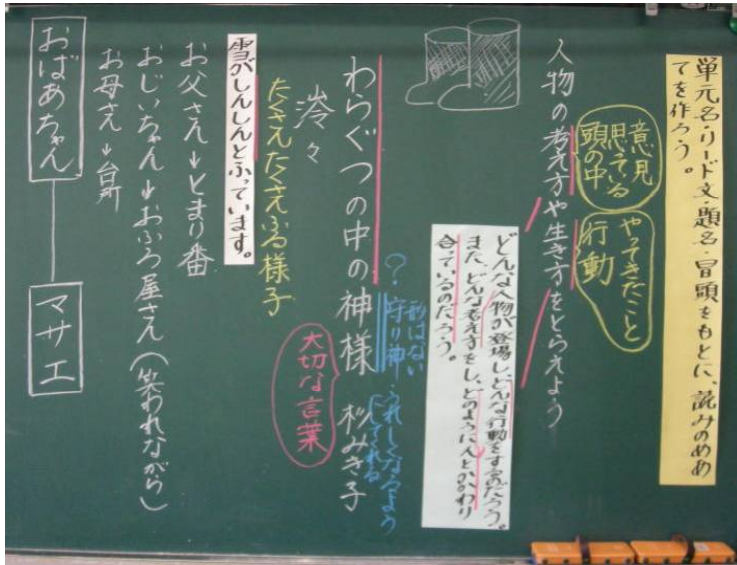 単元名・リード文・題名・冒頭をもとに、読みのめあ
てを作ろう。
やってきたこと
行動
意見
思っている
頭の中
人物の考え方や生き方をとらえよう
どんな人物が登場し、どんな行動をするのだろう。
また、どんな考え方をし、どのように人とかかわり
合っているのだろう。
わらぐつの中の神様 杉みき子
形はない
?守り神・うれしくなるよう
にしてくれる
大切な言葉
たくさんたくさんふる様子
雪がしんしんとふっています。
お父さん→とまり番
おじいちゃん→おふろ屋さん(笑われながら)
お母さん→台所
おばあちゃん
マサエ